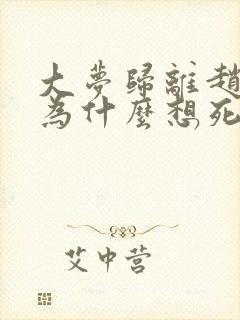 大夢歸離趙
為什麼想死
艾中营